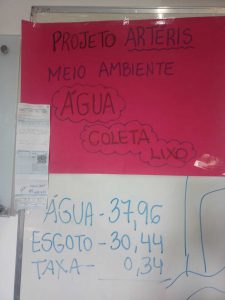 PROJETO ARTERIS
MEIO AMBIENTE
ÁGUA
COLETA
LIXO
ÁGUA - 37,96
ESGOTO - 30,44
TAXA - 0,34